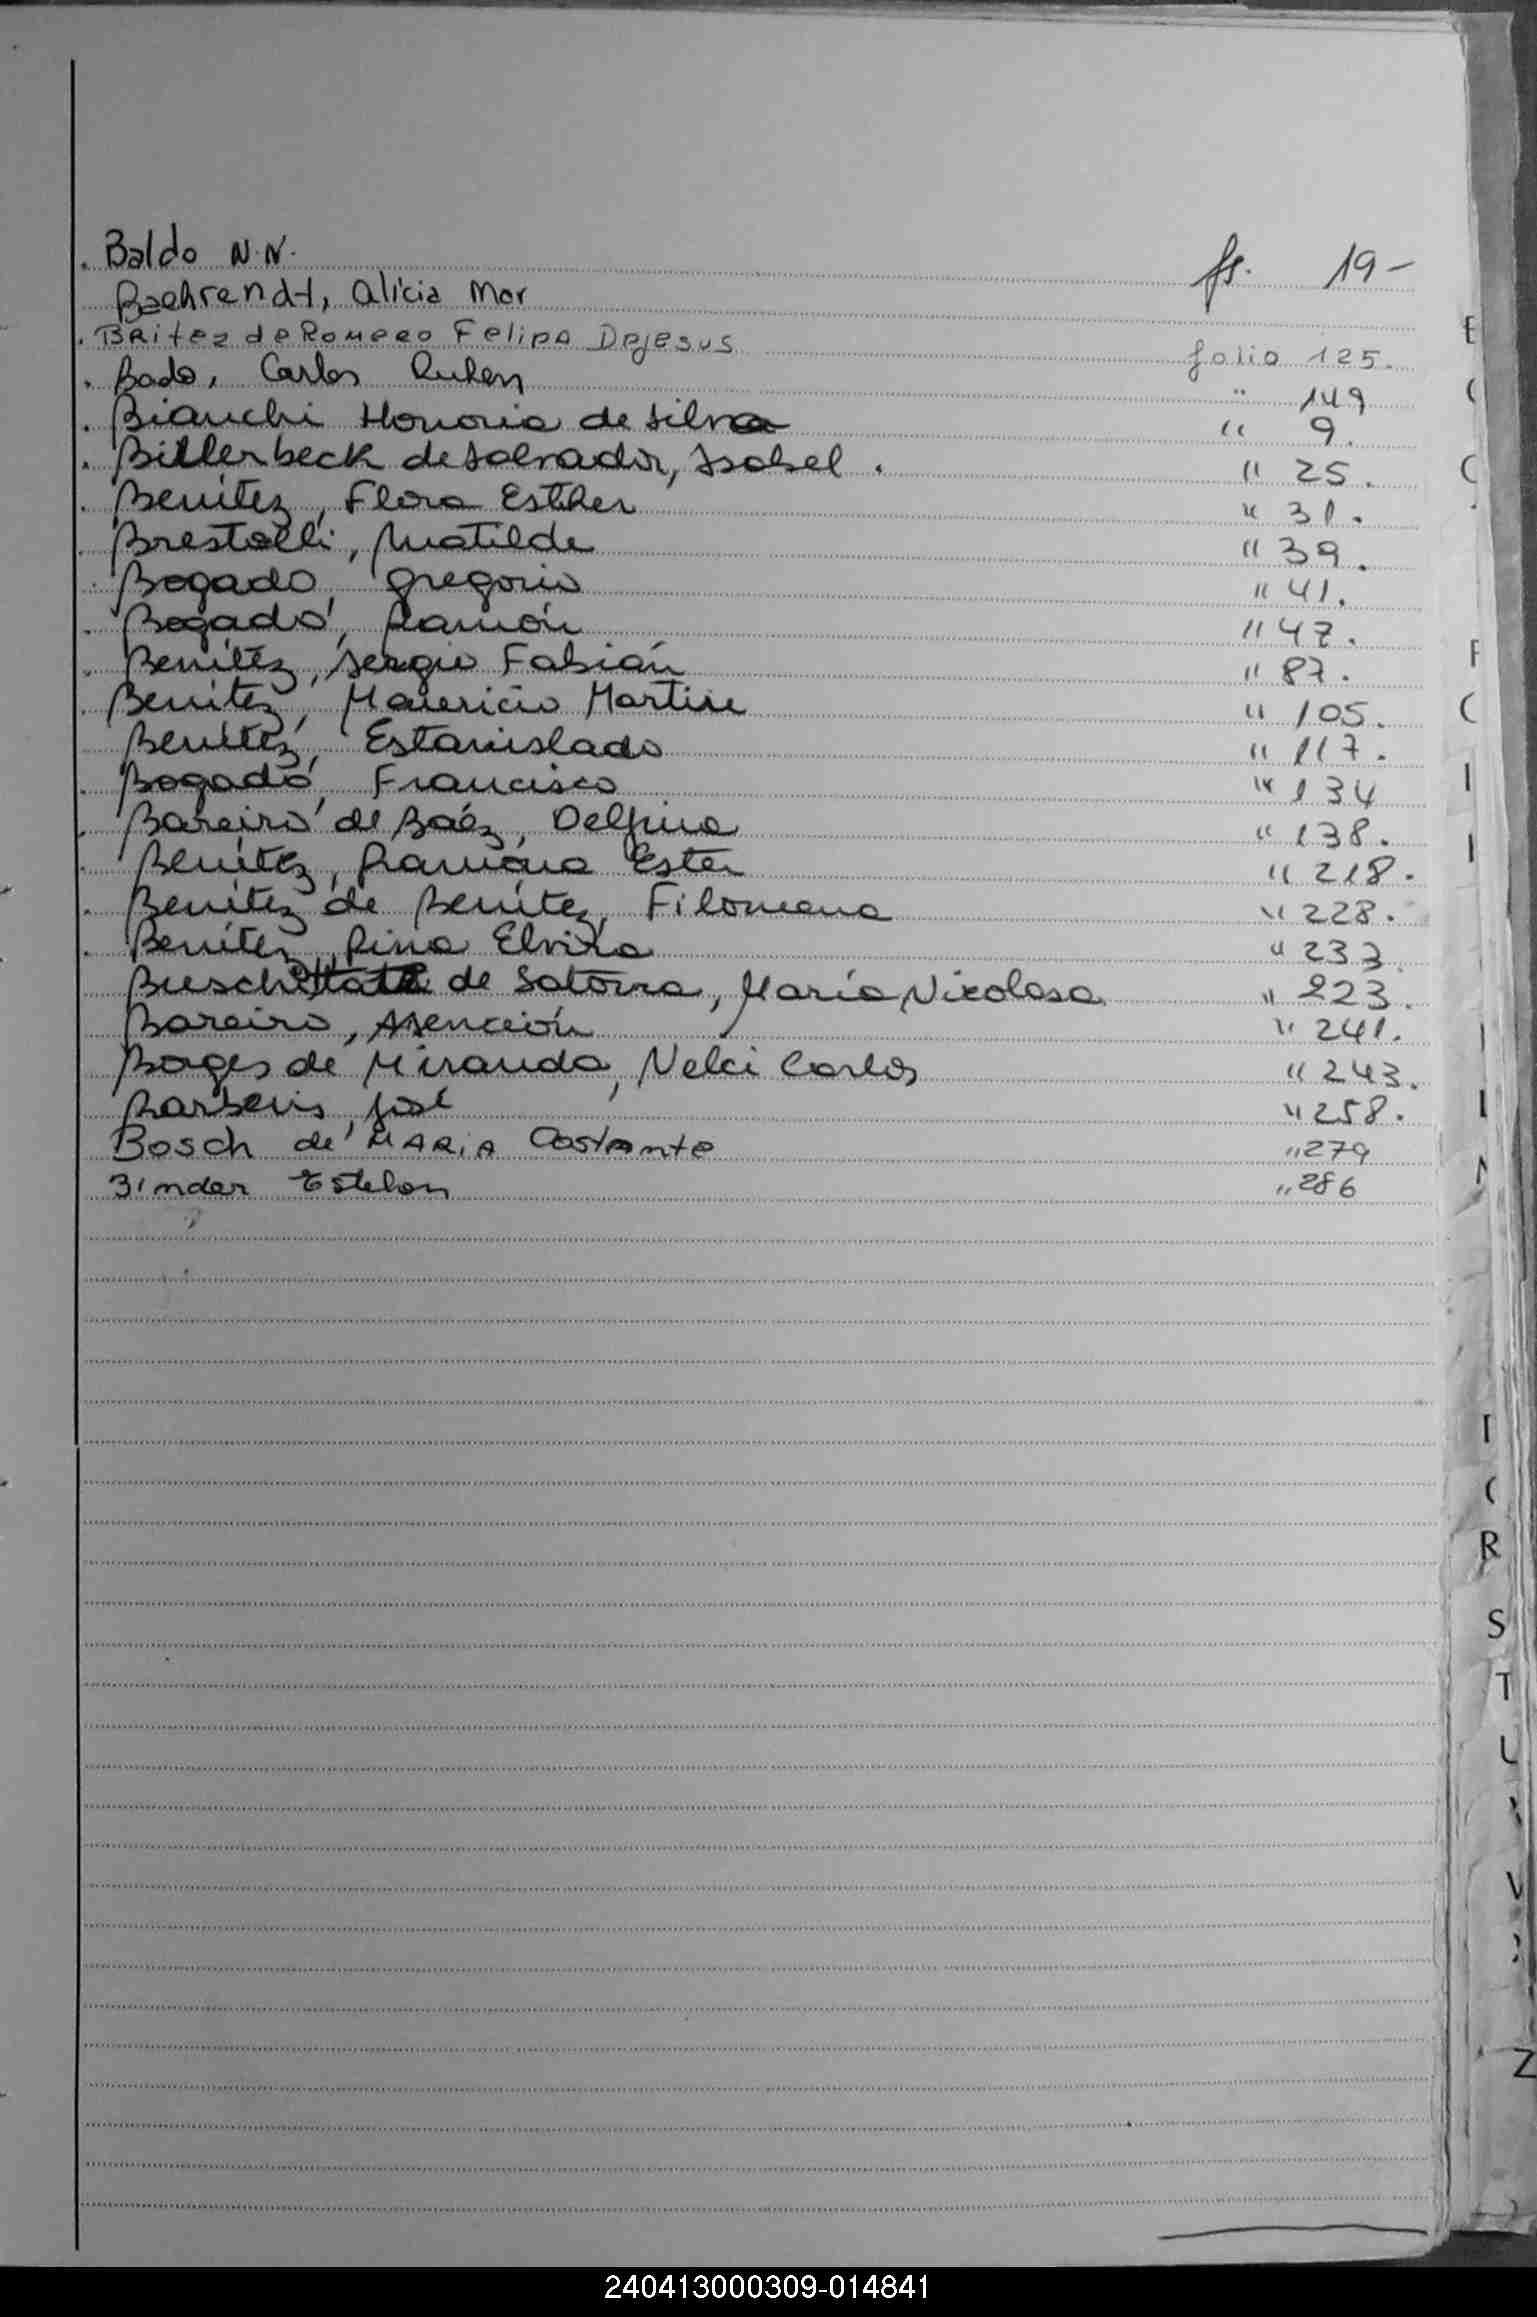 . Baldo N.N. fs. 19 -
Baehrendt, Alicia Mor
. Britez de Romero Felipa Dejesus folio 125.
. Bado, Carlos Ruben " 149
. Bianchi Honoria de Silva " 9.
. Billerbeck de Salvador, Isabel . " 25.
. Benítez, Flora Esther " 31.
. Brestolli, Matilde " 39.
. Bogado, Gregorio " 41.
. Bogado, Ramón " 47.
. Benítez, Sergio Fabián " 87.
. Benítez, Mauricio Martin " 105.
. Benítez, Estanislado " 117.
. Bogado, Francisco " 134
. Bareiro de Báez, Delfina " 138.
. Benítez, Ramona Ester " 218.
. Benítez de Benítez, Filomena " 228.
. Benítez, Rina Elvira " 233.
de Satorra, María Nicolasa " 223.
Bareiro, Asención " 241.
Borges de Miranda, Nelci Carlos " 243.
Barberis, José " 258.
Bosch de MARIA Costante " 279
Binder Estelan " 286
E
C
G
F
I
I
I
N
R
S
T
U
V
Z
240413000309-014841